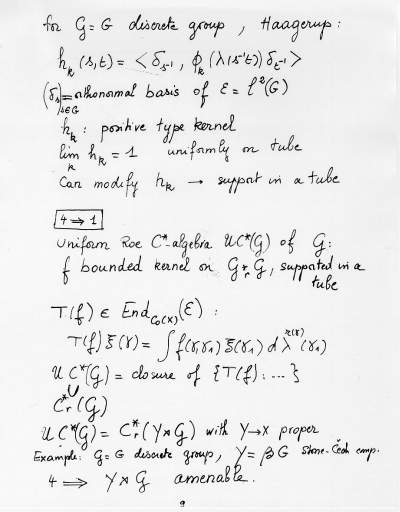 for G = G discrete group, Haagerup:
h_k(s,t) = <δ_{s^{-1}}, φ_k(λ(s^{-1}t)) δ_{t^{-1}}>
(δ_s)_{s∈G} = orthonormal basis of ℰ = ℓ²(G)
h_k : positive type kernel
lim_k h_k = 1 uniformly on tube
Can modify h_k → support in a tube
4 ⇒ 1
Uniform Roe C*-algebra UC*(G) of G:
f bounded kernel on G *_r G, supported in a
tube
T(f) ∈ End_{C_0(X)}(ℰ) :
T(f) ξ(γ) = ∫ f(γ,γ_1) ξ(γ_1) dλ^{r(γ)}(γ_1)
UC*(G) = closure of {T(f): ...}
∪
C*_r(G)
UC*(G) = C*_r(Y⋊G) with Y→X proper
Example: G = G discrete group, Y = βG Stone-Čech cmp.
4 ⟹ Y⋊G amenable.